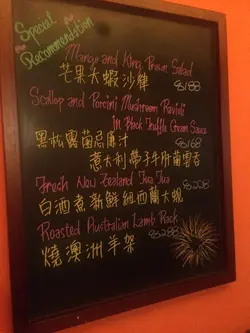 Special
Recommendation
Mango and King Prawn Salad
芒果大蝦沙律 $188
Scallop and Porcini Mushroom Ravioli
in Black Truffle Cream Sauce
黑松露菌忌廉汁 $168
意大利帶子牛肝菌雲吞
Fresh New Zealand Tua Tua $228
白酒煮新鮮紐西蘭大蜆
Roasted Australian Lamb Rack
燒澳洲羊架 $288